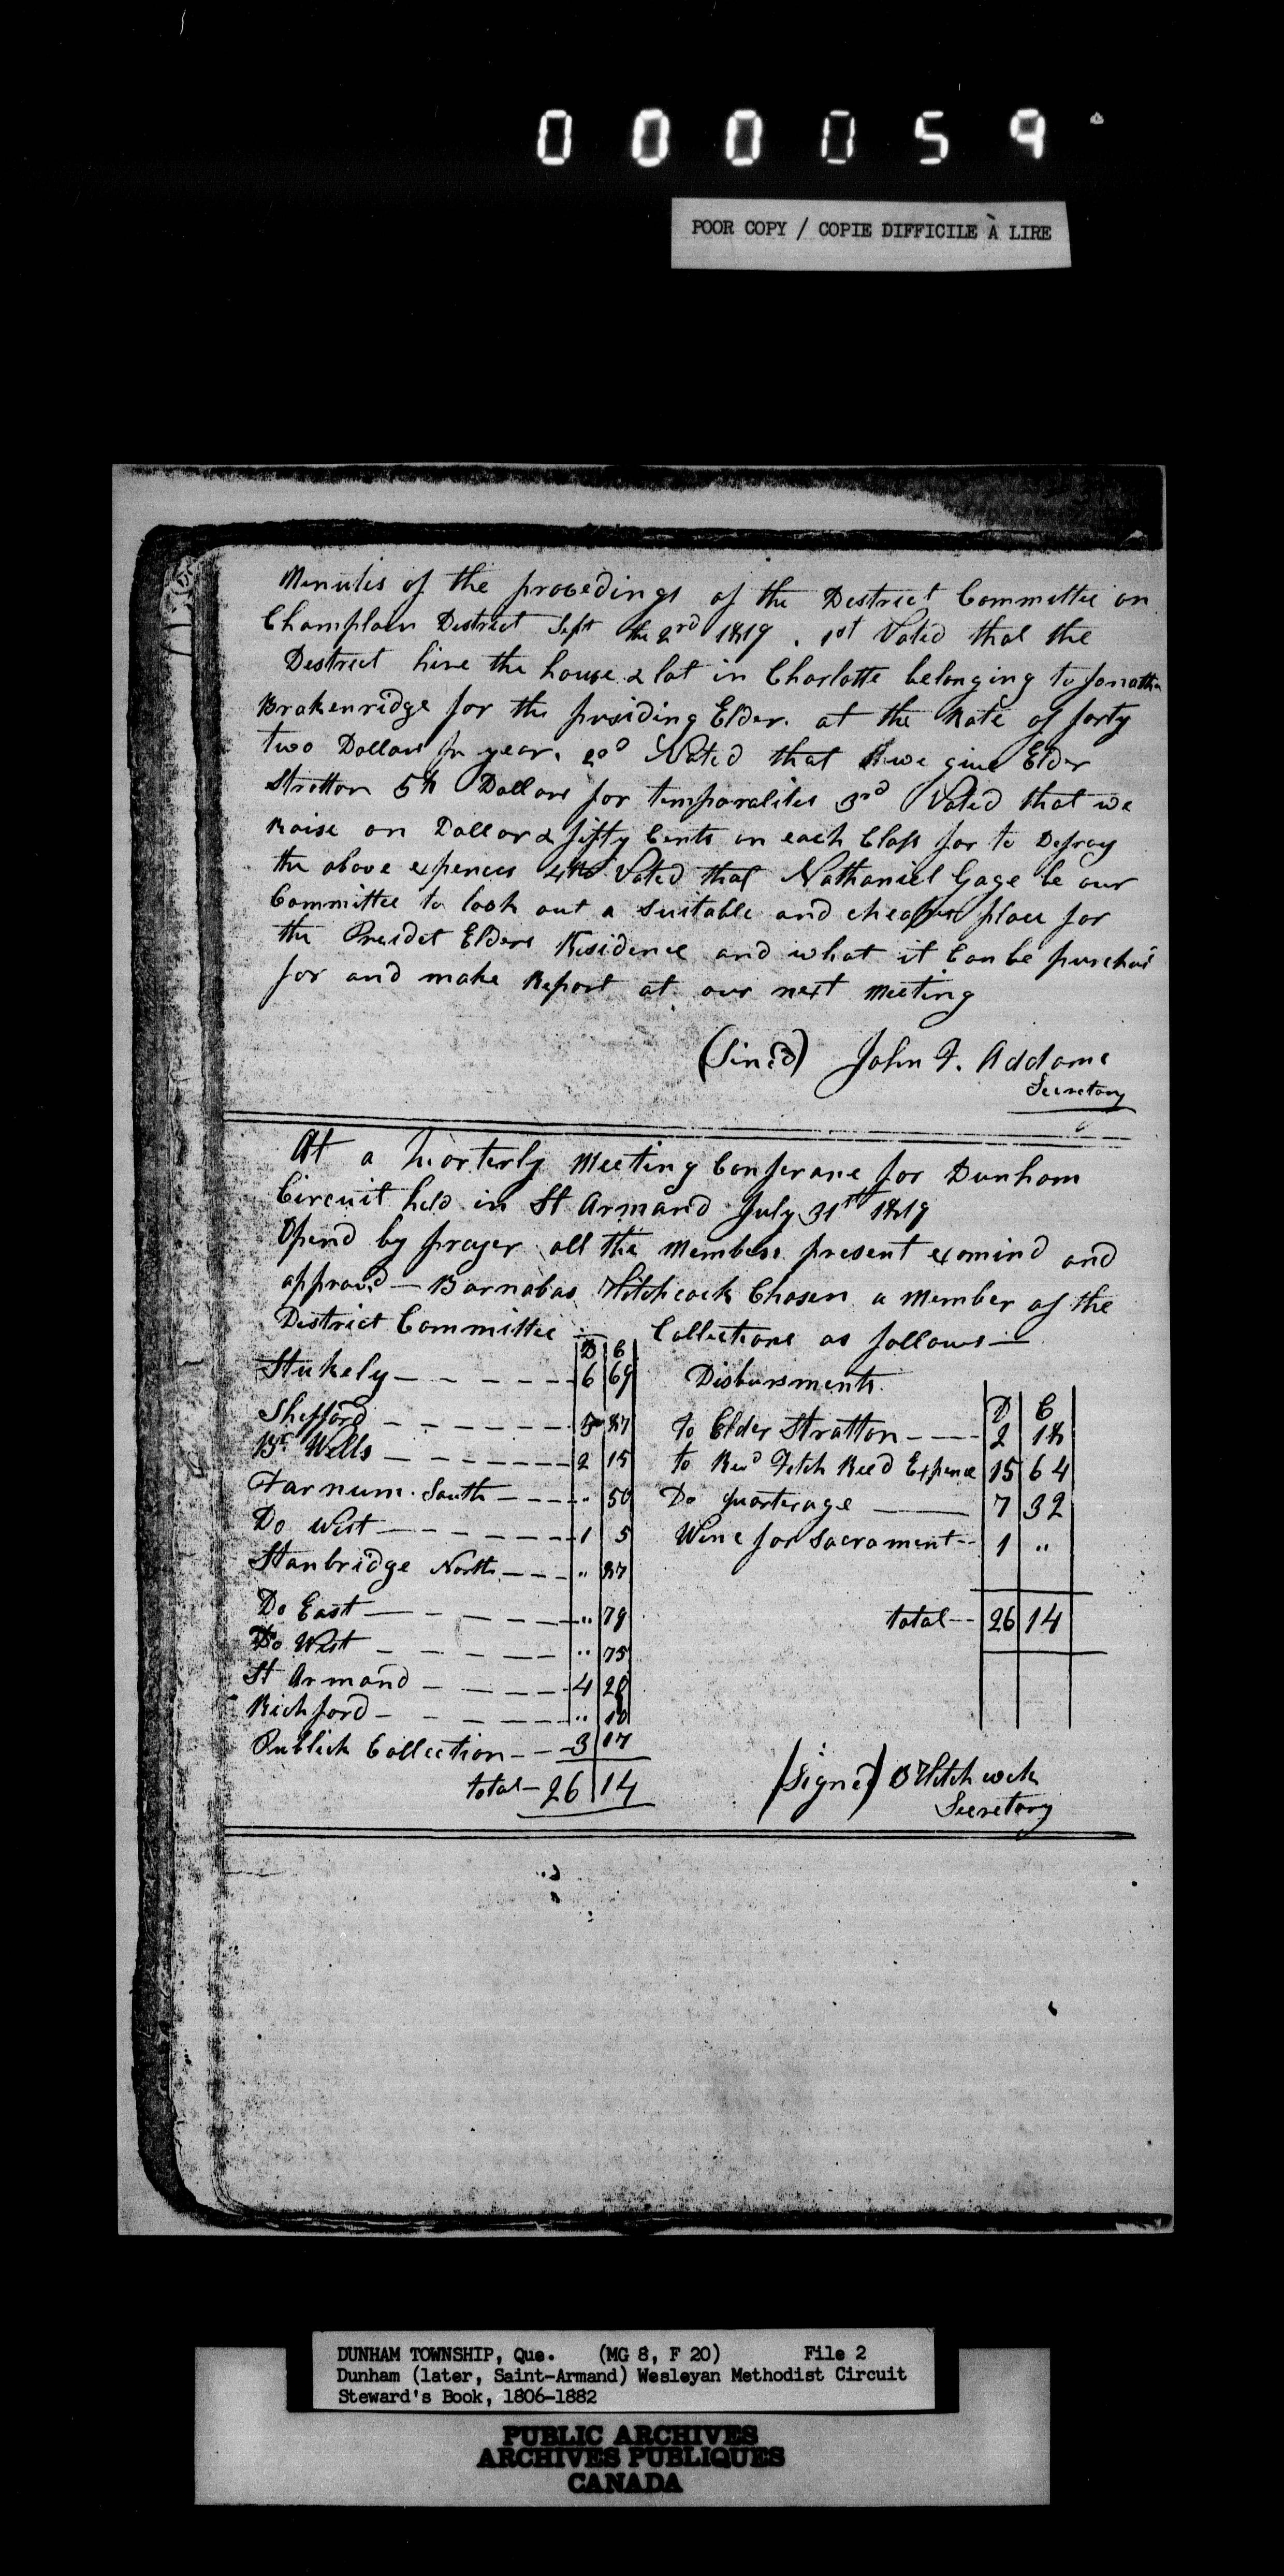 0 0 0 0 5 9
POOR COPY / COPIE DIFFICILE À LIRE
Minutes of the procedings of the District Committee on
Champlain District Sept the 2nd 1819. 1st Voted that the
District hire the house & lot in Charlotte belonging to Jonathan
Brakenridge for the presiding Elder. at the Rate of forty
two Dollars pr year. 2d Voted that we give Elder
Stratton 58 Dollars for temporalities 3rd Voted that we
Raise on Dollar & fifty Cents on each Class for to Defray
the above expences 4th Voted that Nathaniel Gage be our
Committee to look out a suitable and cheap place for
the Presidet Elders Residence and what it Can be purchas
for and make Report at our next meeting
(Sin:d) John F. Addams
Secretary
At a Quorterly Meeting Conferane for Dunham
Circuit held in St Armand July 31st 1819
Opend by prayer all the Members present examind and
approvd — Barnabas Hitchcock Chosen a Member of the
District Committee — Collections as follows —
D C
Stukely 6 69
Shefford 5 87
Br Wells 2 15
Farnum South " 50
Do West 1 5
Stanbridge North " 87
Do East " 79
Do West " 75
St Armand 4 20
Richford " 10
Publick Collection 3 17
total 26 14
Disbursments
D C
to Elder Stratton 2 18
to Revd Fitch Reed Expence 15 64
Do quarterage 7 32
Wine for Sacrament 1 "
total 26 14
(Signed) B Hitchcock
Secretary
DUNHAM TOWNSHIP, Que. (MG 8, F 20) File 2
Dunham (later, Saint-Armand) Wesleyan Methodist Circuit
Steward's Book, 1806-1882
PUBLIC ARCHIVES
ARCHIVES PUBLIQUES
CANADA